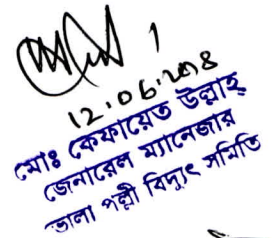 12.06.2018
মোঃ কেফায়েত উল্লাহ্
জেনারেল ম্যানেজার
ভোলা পল্লী বিদ্যুৎ সমিতি